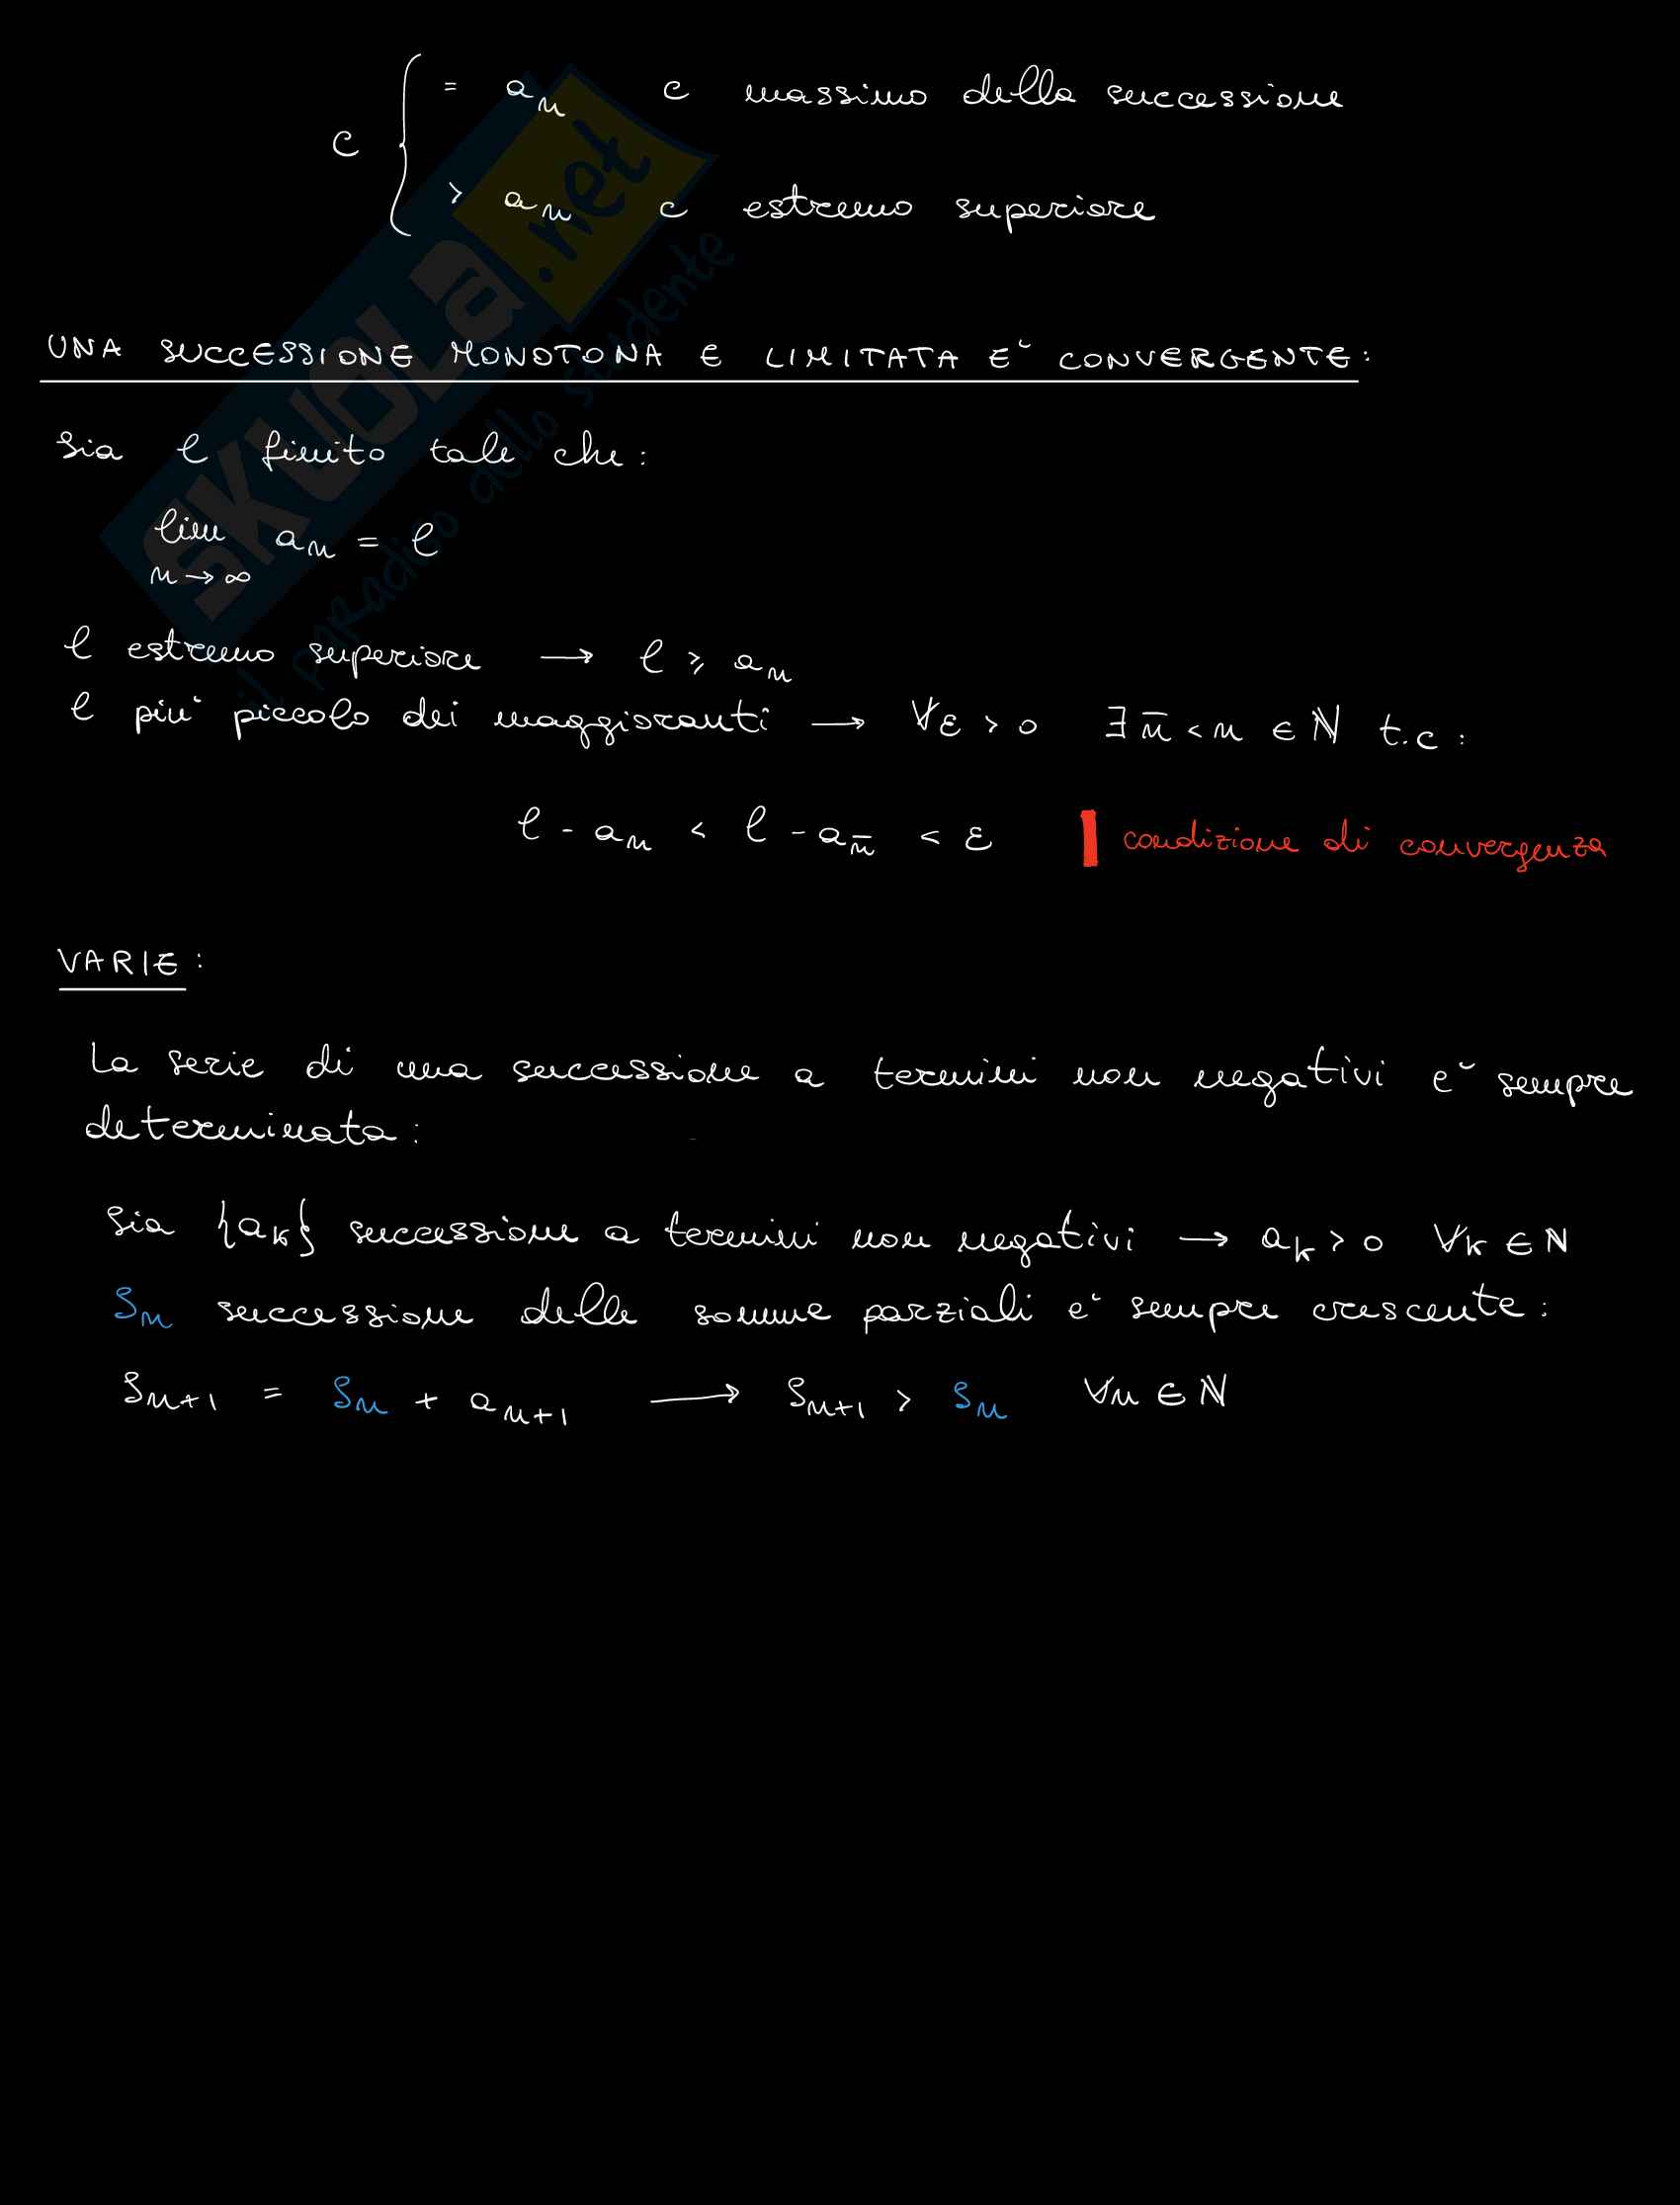 c { = aₙ c massimo della successione
> aₙ c estremo superiore
UNA SUCCESSIONE MONOTONA E LIMITATA E' CONVERGENTE:
Sia l finito tale che:
lim aₙ = l
n → ∞
l estremo superiore → l ≥ aₙ
l piu' piccolo dei maggioranti → ∀ε > 0 ∃ n̄ < n ∈ ℕ t.c:
l - aₙ < l - a_n̄ < ε | condizione di convergenza
VARIE:
La serie di una successione a termini non negativi e' sempre
determinata:
Sia {aₖ} successione a termini non negativi → aₖ > 0 ∀k ∈ ℕ
Sₙ successione delle somme parziali e' sempre crescente:
Sₙ₊₁ = Sₙ + aₙ₊₁ → Sₙ₊₁ > Sₙ ∀n ∈ ℕ
SKUOLa.net
il paradiso dello studente